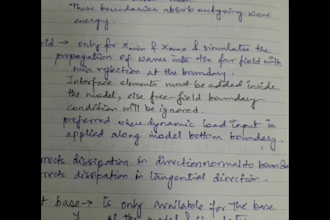 These boundaries absorb outgoing wave
energy.
→ only for xmin & xmax & simulates the
propagation of waves into the far field with
min reflection at the boundary.
Interface elements must be added inside
the model, else free-field boundary
condition will be ignored.
preferred where dynamic load input is
applied along model bottom boundary.
dissipation in direction normal to
dissipation in tangential direction.
base → is only available for the base
of the model